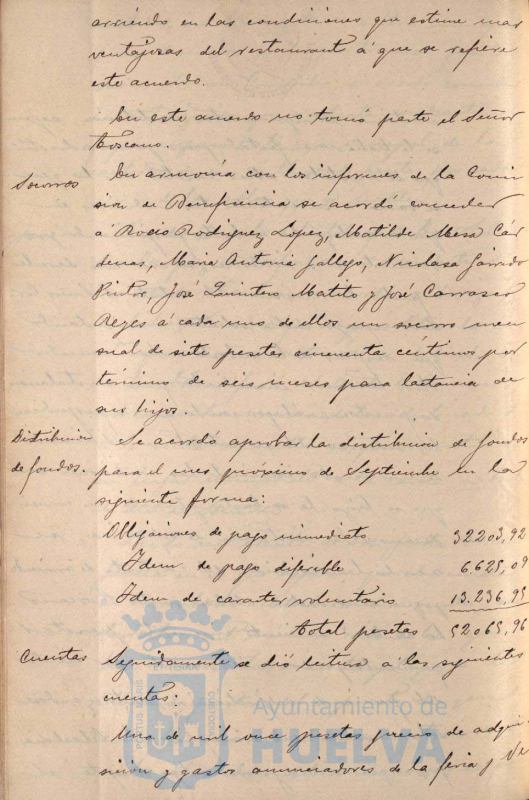 arriendo en las condiciones que estime mas
ventajosas del restaurant á que se refiere
este acuerdo.
En este acuerdo no tomó parte el Señor
Toscano.
Socorros
En armonia con los informes de la Comi
sion de Beneficencia se acordó conceder
á Rocio Rodriguez Lopez, Matilde Mesa Cár
denas, Maria Antonia Gallego, Nicolasa Garrido
Pintor, José Quintero Matito y José Carrasco
Reyes á cada uno de ellos un socorro men
sual de siete pesetas cincuenta céntimos por
término de seis meses para lactancia de
sus hijos.
Distribucion
de fondos.
Se acordó aprobar la distribucion de fondos
para el mes próximo de Septiembre en la
siguiente forma:
Obligaciones de pago inmediato 32203,92
Idem de pago diferible 6.625,09
Idem de caracter voluntario 13.236,95
total pesetas 52065,96
Cuentas
Seguidamente se dió lectura a las siguientes
cuentas:
Una de mil once pesetas precio de adqui
sicion y gastos anunciadores de la feria y Ve
PORTUS MARIS
Ayuntamiento de
HUELVA